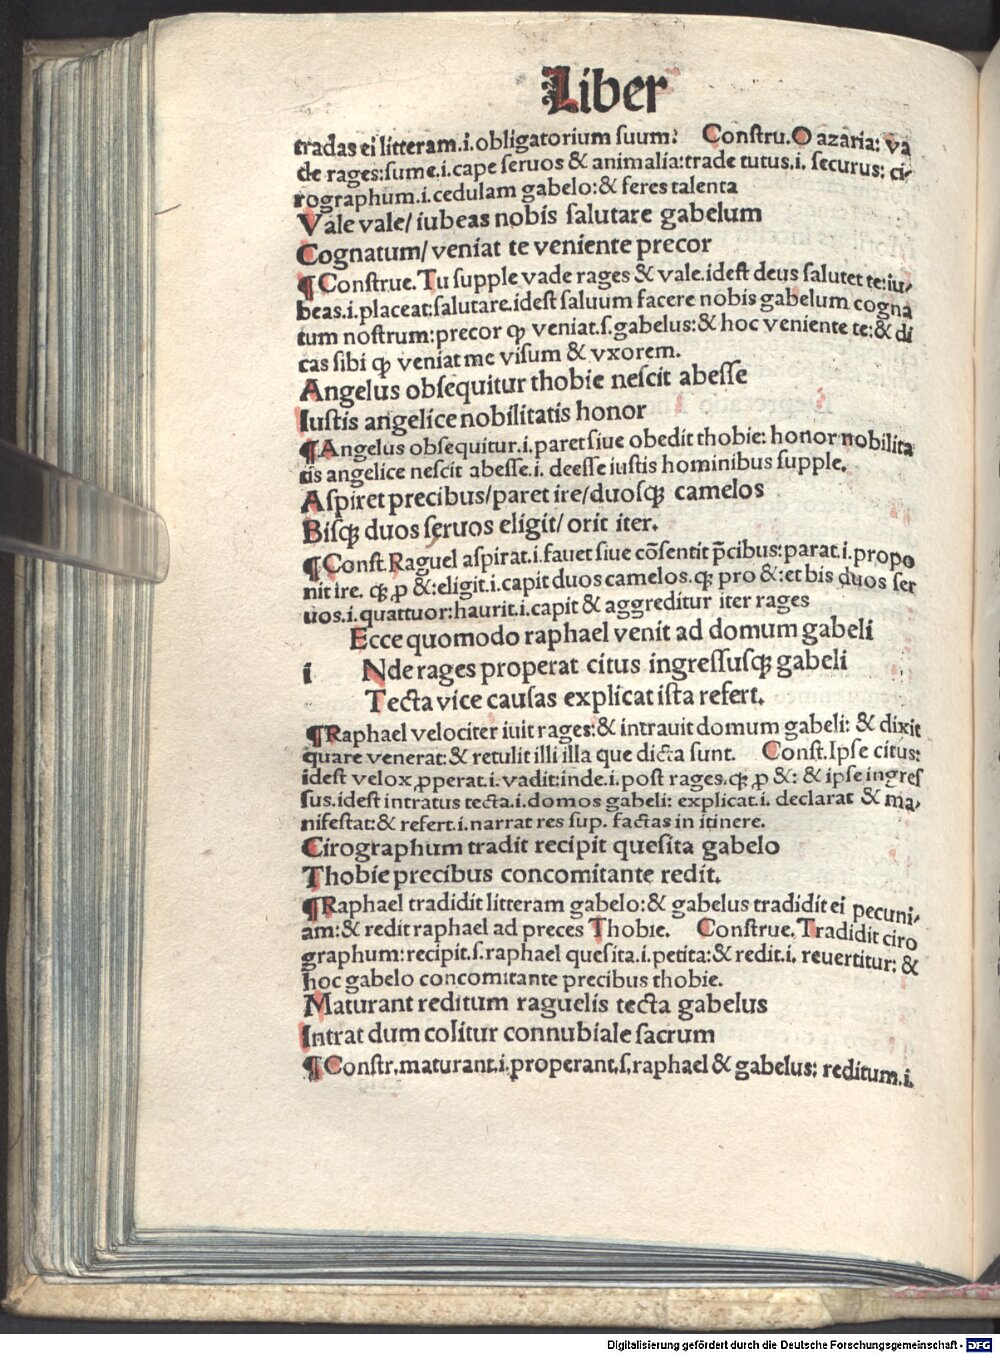 Liber
tradas ei litteram.i.obligatorium suum: Constru. O azaria: va
de rages:sume.i.cape seruos & animalia:trade tutus.i. securus: ci-
rographum.i.cedulam gabelo:& feres talenta
Vale vale/ iubeas nobis salutare gabelum
Cognatum/ veniat te veniente precor
¶ Construe. Tu supple vade rages & vale.idest deus salutet te:iu-
beas.i.placeat:salutare.idest saluum facere nobis gabelum cogna
tum nostrum:precor ꝙ veniat.s.gabelus:& hoc veniente te:& di
cas sibi ꝙ veniat me visum & vxorem.
Angelus obsequitur thobie nescit abesse
Iustis angelice nobilitatis honor
¶ Angelus obsequitur.i.paret siue obedit thobie: honor nobilita
tis angelice nescit abesse.i. deesse iustis hominibus supple.
Aspiret precibus/paret ire/duosqꝫ camelos
Bisqꝫ duos seruos eligit/ orit iter.
¶ Const. Raguel aspirat.i.fauet siue cōsentit p̄cibus:parat.i.propo
nit ire. qꝫ ꝓ &:eligit.i.capit duos camelos.qꝫ pro &:et bis duos ser
uos.i.quattuor:haurit.i.capit & aggreditur iter rages
Ecce quomodo raphael venit ad domum gabeli
i Nde rages properat citus ingressusqꝫ gabeli
Tecta vice causas explicat ista refert.
¶ Raphael velociter iuit rages:& intrauit domum gabeli: & dixit
quare venerat:& retulit illi illa que dicta sunt. Const. Ipse citus:
idest velox ꝓperat.i.vadit:inde.i.post rages.qꝫ ꝓ &: & ipse ingres
sus.idest intratus tecta.i.domos gabeli: explicat.i. declarat & ma-
nifestat:& refert.i.narrat res sup. factas in itinere.
Cirographum tradit recipit quesita gabelo
Thobie precibus concomitante redit.
¶ Raphael tradidit litteram gabelo:& gabelus tradidit ei pecuni-
am:& redit raphael ad preces Thobie. Construe. Tradidit ciro
graphum:recipit.s.raphael quesita.i.petita:& redit.i. reuertitur: &
hoc gabelo concomitante precibus thobie.
Maturant reditum raguelis tecta gabelus
Intrat dum colitur connubiale sacrum
¶ Constr.maturant.i.properant.s.raphael & gabelus: reditum.i.
Digitalisierung gefördert durch die Deutsche Forschungsgemeinschaft - DFG